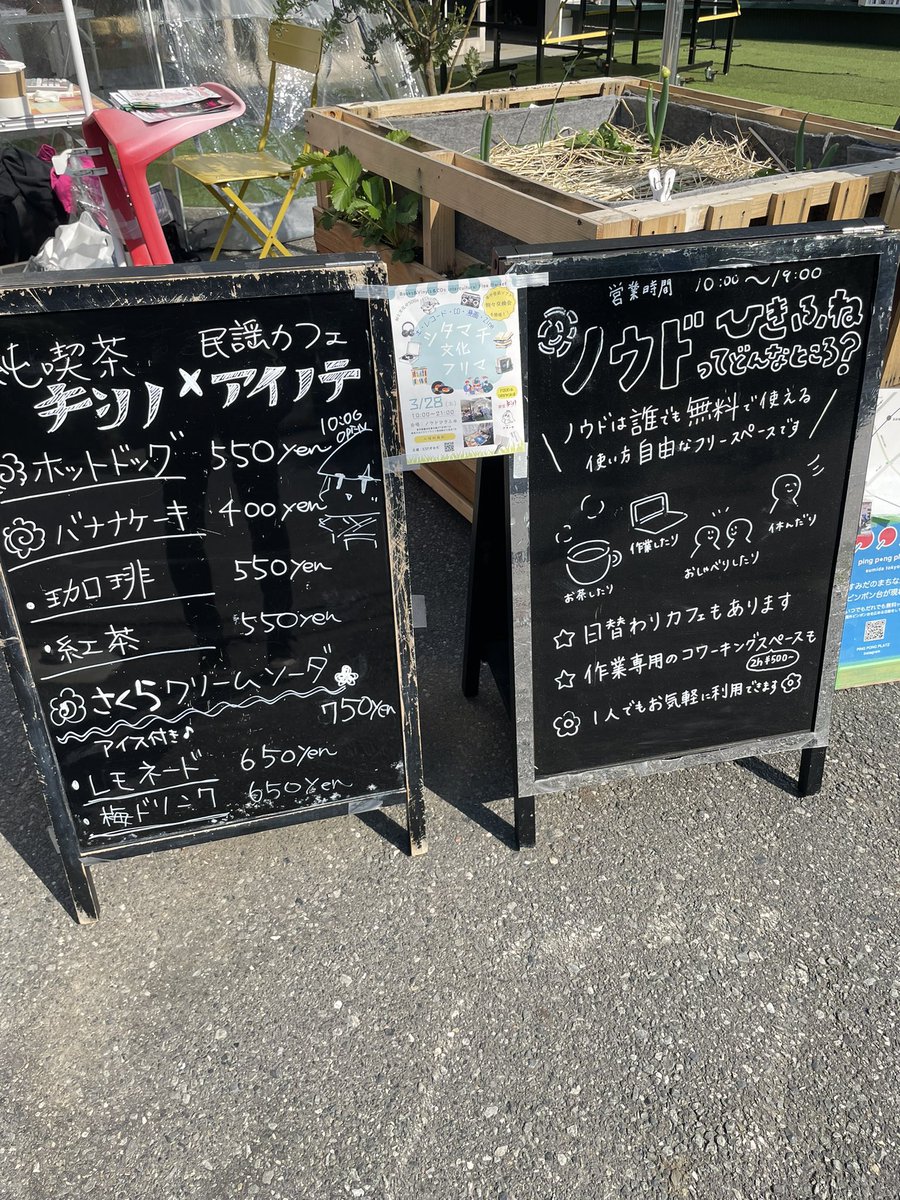 純喫茶
民謡カフェ
チンノ×アイノテ
10:00
OPEN
ホットドッグ 550yen
バナナケーキ 400yen
・珈琲 550yen
・紅茶 550yen
さくらクリームソーダ
750yen
アイス付き♪
・レモネード 650yen
・梅ドリンク 650yen
シタマチ
文化
フリマ
3/28
10:00〜21:00
営業時間 10:00〜19:00
ノウド ひきふね
ってどんなところ?
ノウドは誰でも無料で使える
使い方自由なフリースペースです
お茶したり
作業したり
おしゃべりしたり
休んだり
☆日替わりカフェもあります
☆作業専用のコワーキングスペースも
2h ¥500~
1人でもお気軽に利用できます
ping pong platz
sumida tokyo
PING PONG PLATZ
Instagram